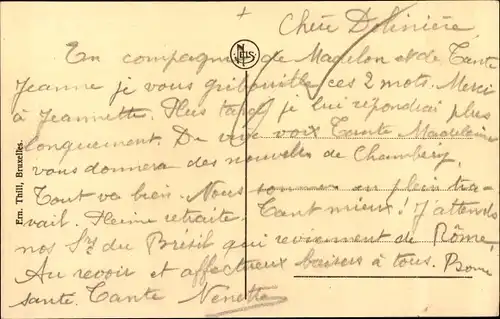 Chère Delinière
En compagnie de Madelon et de Tante
Jeanne je vous gribouille ces 2 mots. Merci
à Jeannette. Plus tard je lui répondrai plus
longuement. De vive voix Tante Madeleine
vous donnera des nouvelles de Chambéry.
Tout va bien. Nous sommes en plein tra-
vail. Pleine retraite. Tant mieux! J'attends
nos Srs du Brésil qui reviennent de Rôme,
Au revoir et affectueux baisers à tous. Bonne
santé. Tante Nenette
NELS
Ern. Thill, Bruxelles.